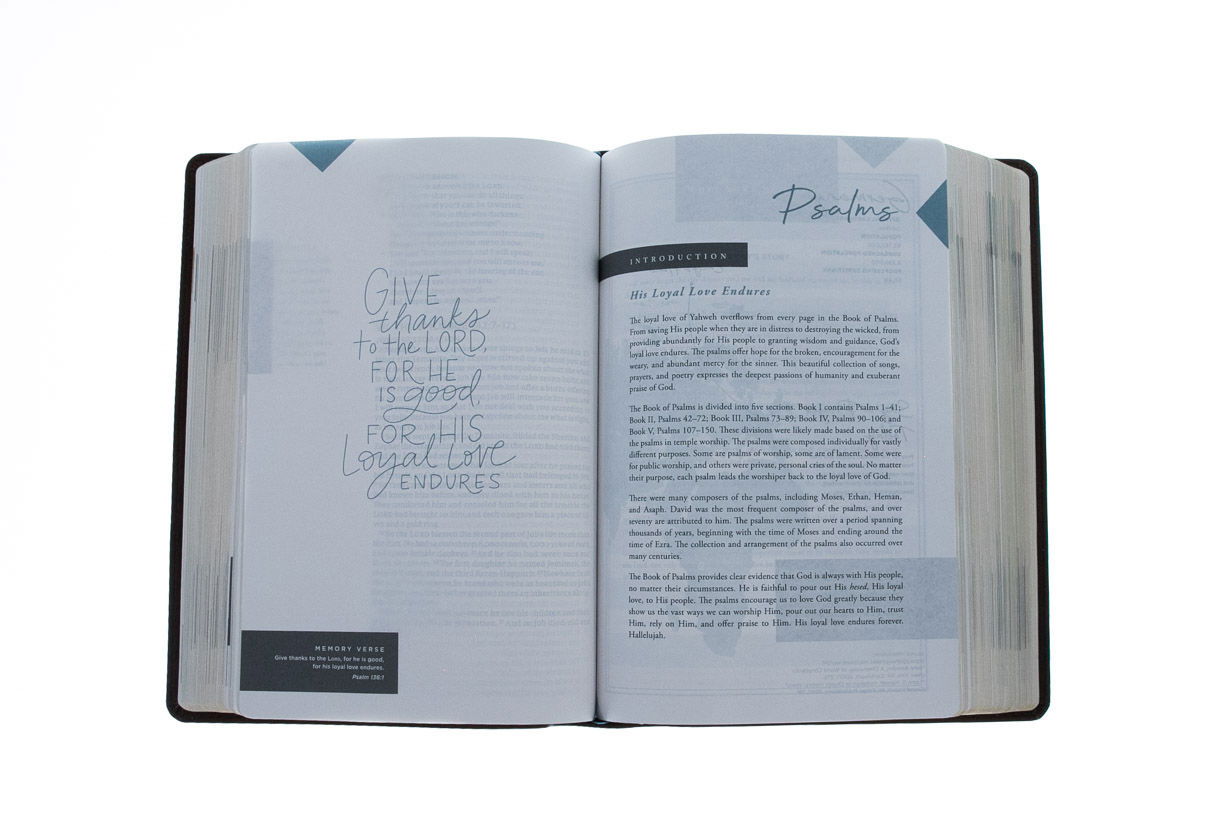 GIVE
thanks
to the LORD,
FOR HE
IS good,
FOR HIS
Loyal Love
ENDURES
MEMORY VERSE
Give thanks to the LORD, for he is good,
for his loyal love endures.
Psalm 136:1
Psalms
INTRODUCTION
His Loyal Love Endures
The loyal love of Yahweh overflows from every page in the Book of Psalms.
From saving His people when they are in distress to destroying the wicked, from
providing abundantly for His people to granting wisdom and guidance, God's
loyal love endures. The psalms offer hope for the broken, encouragement for the
weary, and abundant mercy for the sinner. This beautiful collection of songs,
prayers, and poetry expresses the deepest passions of humanity and exuberant
praise of God.
The Book of Psalms is divided into five sections. Book I contains Psalms 1–41;
Book II, Psalms 42–72; Book III, Psalms 73–89; Book IV, Psalms 90–106; and
Book V, Psalms 107–150. These divisions were likely made based on the use of
the psalms in temple worship. The psalms were composed individually for vastly
different purposes. Some are psalms of worship, some are of lament. Some were
for public worship, and others were private, personal cries of the soul. No matter
their purpose, each psalm leads the worshiper back to the loyal love of God.
There were many composers of the psalms, including Moses, Ethan, Heman,
and Asaph. David was the most frequent composer of the psalms, and over
seventy are attributed to him. The psalms were written over a period spanning
thousands of years, beginning with the time of Moses and ending around the
time of Ezra. The collection and arrangement of the psalms also occurred over
many centuries.
The Book of Psalms provides clear evidence that God is always with His people,
no matter their circumstances. He is faithful to pour out His hesed, His loyal
love, to His people. The psalms encourage us to love God greatly because they
show us the vast ways we can worship Him, pour out our hearts to Him, trust
Him, rely on Him, and offer praise to Him. His loyal love endures forever.
Hallelujah.